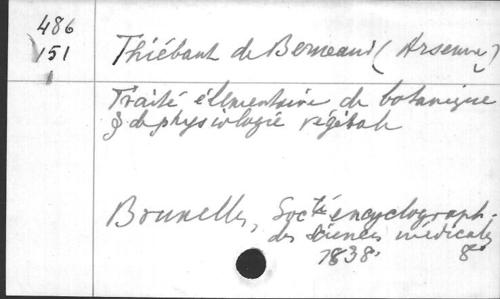 486
151
Thiébaut de Berneaud (Arsenne)
Traité élémentaire de botanique
& de physiologie végétale
Bruxelles, Socté encyclograph.
des sciences médicales
1838. 8°